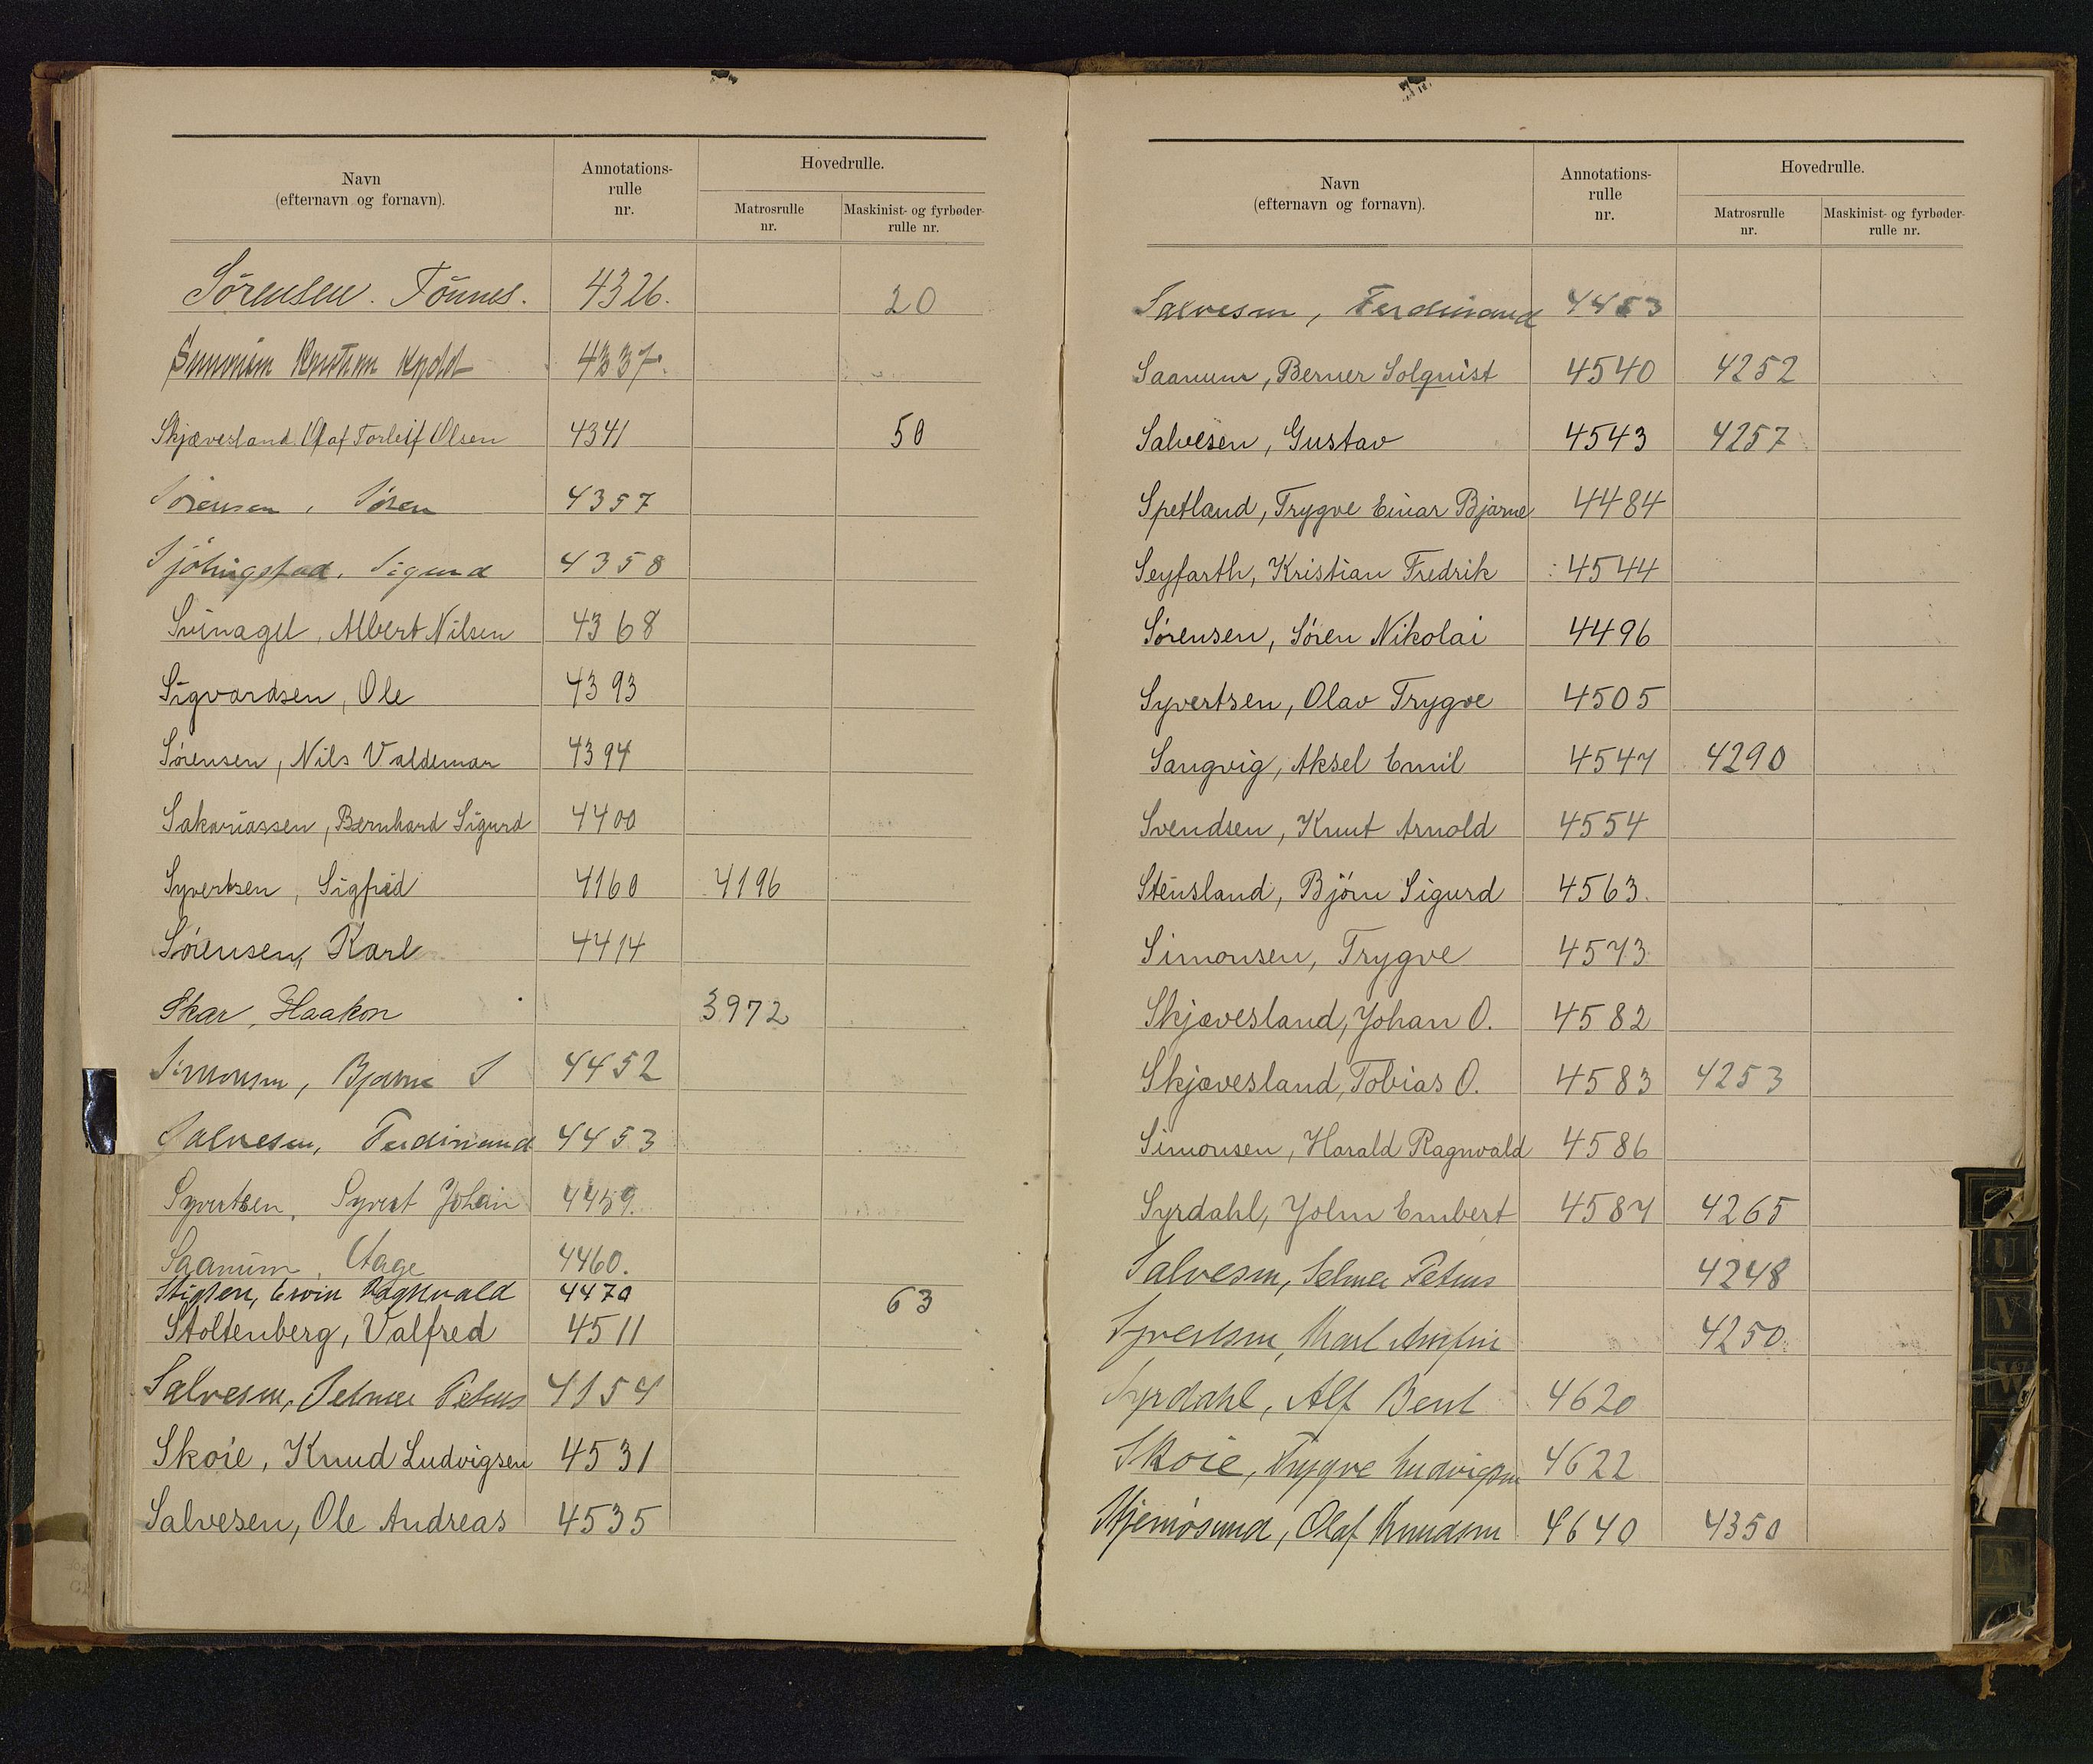 Navn
(efternavn og fornavn).
Annotations-
rulle
nr.
Hovedrulle.
Matrosrulle
nr.
Maskinist- og fyrbøder-
rulle nr.
Sørensen. Tönnes. 4326. 20
4337.
Skjævesland Olaf Torleif Olsen 4341 50
Sörensen, Sören 4357
Sjölingstad, Sigurd 4358
Svinagel, Albert Nilsen 4368
Sigvardsen, Ole 4393
Sørensen, Nils Valdemar 4394
Sakariassen, Bernhard Sigurd 4400
Syvertsen, Sigfred 4160 4196
Sörensen, Karl 4414
Skar, Haakon 3972
Simonsen, Bjarne S 4452
Salvesen, Ferdinand 4453
Syvertsen, Syvert Johan 4459.
Saanum, Aage 4460.
Erwin Ragnvald 4470 63
Stoltenberg, Valfred 4511
Salvesen, Selmer Petrus 4154
Skoie, Knud Ludvigsen 4531
Salvesen, Ole Andreas 4535
Navn
(efternavn og fornavn).
Annotations-
rulle
nr.
Hovedrulle.
Matrosrulle
nr.
Maskinist- og fyrbøder-
rulle nr.
Salvesen, Ferdinand 4453
Saanum, Berner Solquist 4540 4252
Salvesen, Gustav 4543 4257
Spetland, Trygve Einar Bjarne 4484
Seyfarth, Kristian Fredrik 4544
Sørensen, Søren Nikolai 4496
Syvertsen, Olav Trygve 4505
Sangvig, Aksel Emil 4547 4290
Svendsen, Knut Arnold 4554
Stensland, Bjørn Sigurd 4563.
Simonsen, Trygve 4573
Skjævesland, Johan O. 4582
Skjævesland, Tobias O. 4583 4253
Simonsen, Harald Ragnvald 4586
Syrdahl, John Embert 4587 4265
Salvesen, Selmer Petrus 4248
Syvertsen, Karl 4250
Syrdahl, Alf Bent 4620
Skoie, Trygve Ludvigsen 4622
Stjernøsund, Olaf Knudsen 4640 4350
U
V
W